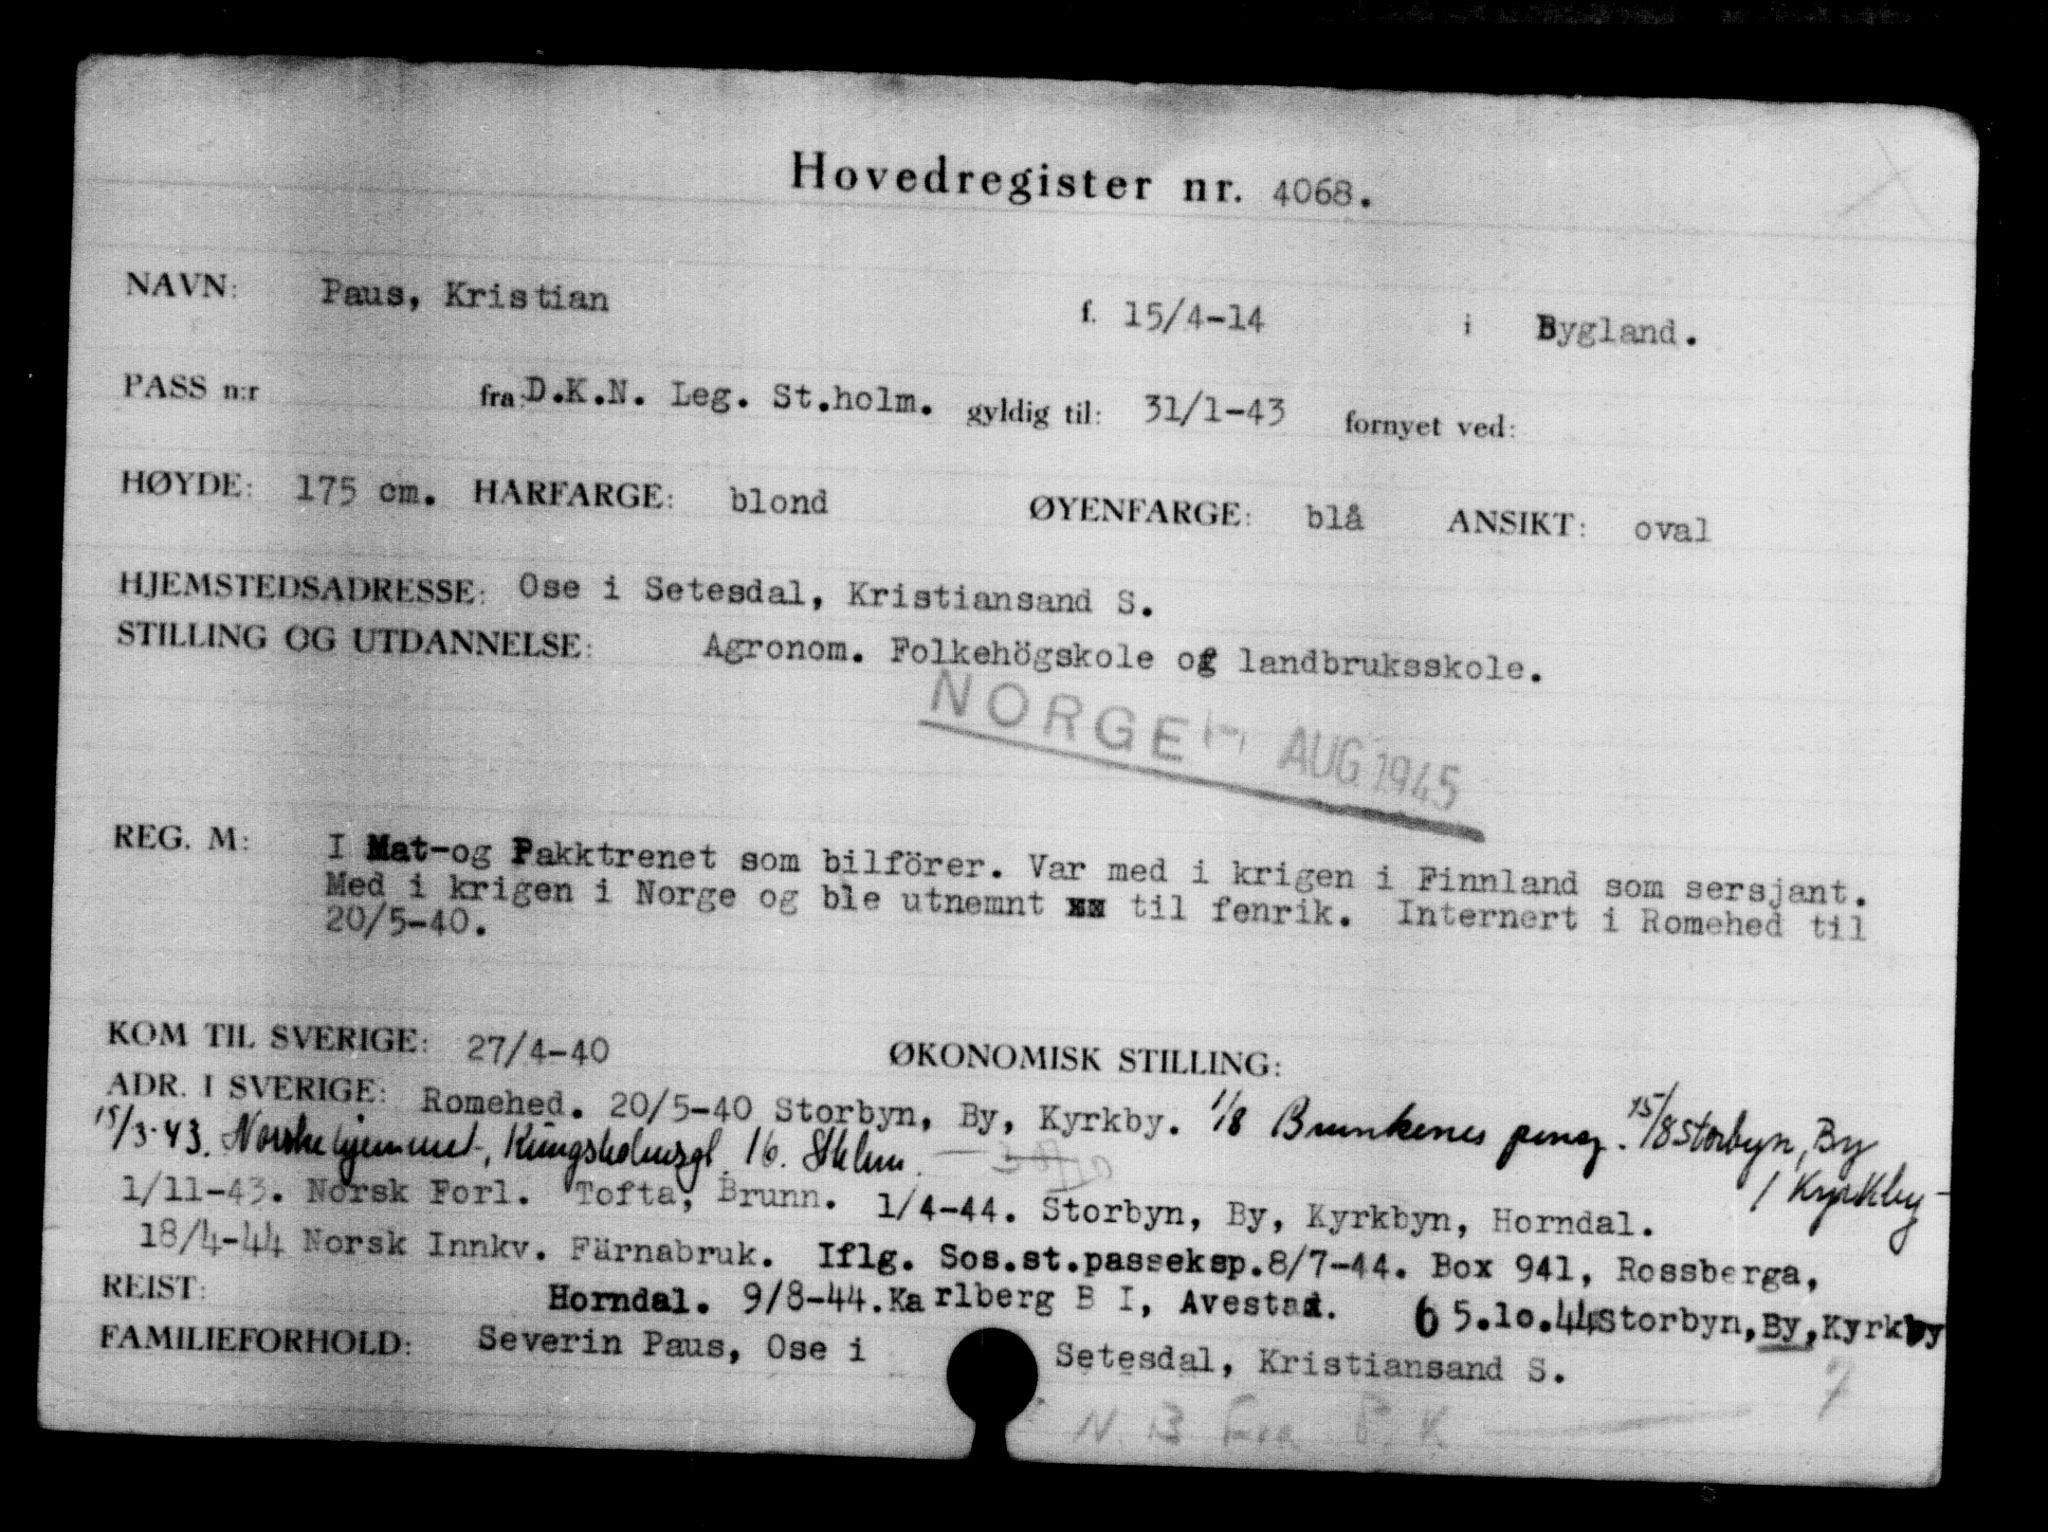 Hovedregister nr. 4068.
NAVN: Paus, Kristian f. 15/4-14 i Bygland.
PASS n:r fra: D.K.N. Leg. St.holm. gyldig til: 31/1-43 fornyet ved:
HØYDE: 175 cm. HARFARGE: blond ØYENFARGE: blå ANSIKT: oval
HJEMSTEDSADRESSE: Ose i Setesdal, Kristiansand S.
STILLING OG UTDANNELSE: Agronom. Folkehögskole og landbruksskole.
NORGE AUG. 1945
REG. M: I Mat-og Pakktrenet som bilförer. Var med i krigen i Finnland som sersjant.
Med i krigen i Norge og ble utnemnt xx til fenrik. Internert i Romehed til
20/5-40.
KOM TIL SVERIGE: 27/4-40 ØKONOMISK STILLING:
ADR. I SVERIGE: Romehed. 20/5-40 Storbyn, By, Kyrkby. 1/8 Brunkenes pensj. 15/8 Storbyn, By
15/3-43. Norske hjemmet, Kungsholmsgt. 16. Sthlm. / Kyrkby
1/11-43. Norsk Forl. Tofta, Brunn. 1/4-44. Storbyn, By, Kyrkbyn, Horndal.
18/4-44 Norsk Innkv. Färnabruk. Iflg. Sos.st.passeksp.8/7-44. Box 941, Rossberga,
REIST: Horndal. 9/8-44.Karlberg B I, Avesta. 5.10.44 Storbyn, By, Kyrkby
FAMILIEFORHOLD: Severin Paus, Ose i Setesdal, Kristiansand S.
N. B Fra F. K